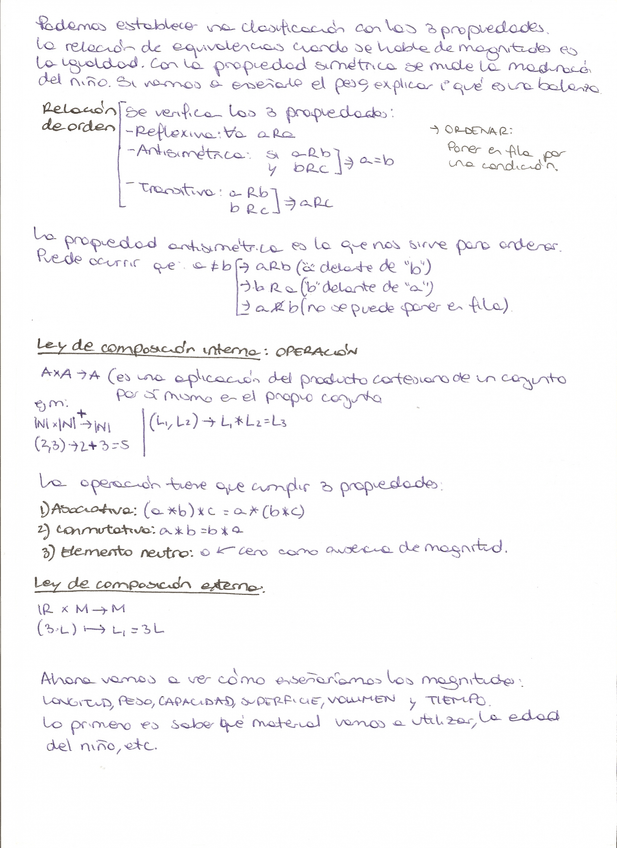 Podemos establecer una clasificación con las 3 propiedades.
La relación de equivalencias cuando se hable de magnitudes es
la igualdad. Con la propiedad simétrica se mide la maduración
del niño. Si vamos a enseñarle el peso, explicar 1º qué es una balanza.
Relación de orden
Se verifica las 3 propiedades:
- Reflexiva: ∀a aRa
- Antisimétrica: si aRb
y bRc ] ⇒ a=b
- Transitiva: aRb
bRc ] ⇒ aRc
→ ORDENAR:
Poner en fila por
una condición.
La propiedad antisimétrica es la que nos sirve para ordenar.
Puede ocurrir que: a≠b → aRb ("a" delante de "b")
→ bRa ("b" delante de "a")
→ a R̸ b (no se puede poner en fila)
Ley de composición interna: OPERACIÓN
AxA → A (es una aplicación del producto cartesiano de un conjunto
por sí mismo en el propio conjunto
ejm:
|N x |N +→ |N
(2,3) → 2+3=5
(L₁, L₂) → L₁ * L₂ = L₃
La operación tiene que cumplir 3 propiedades:
1) Asociativa: (a * b) * c = a * (b * c)
2) Conmutativa: a * b = b * a
3) Elemento neutro: 0 ← cero como ausencia de magnitud.
Ley de composición externa.
IR x M → M
(3·L) ↦ L₁ = 3L
Ahora vamos a ver cómo enseñaríamos las magnitudes:
LONGITUD, PESO, CAPACIDAD, SUPERFICIE, VOLUMEN y TIEMPO.
Lo primero es saber qué material vamos a utilizar, la edad
del niño, etc.